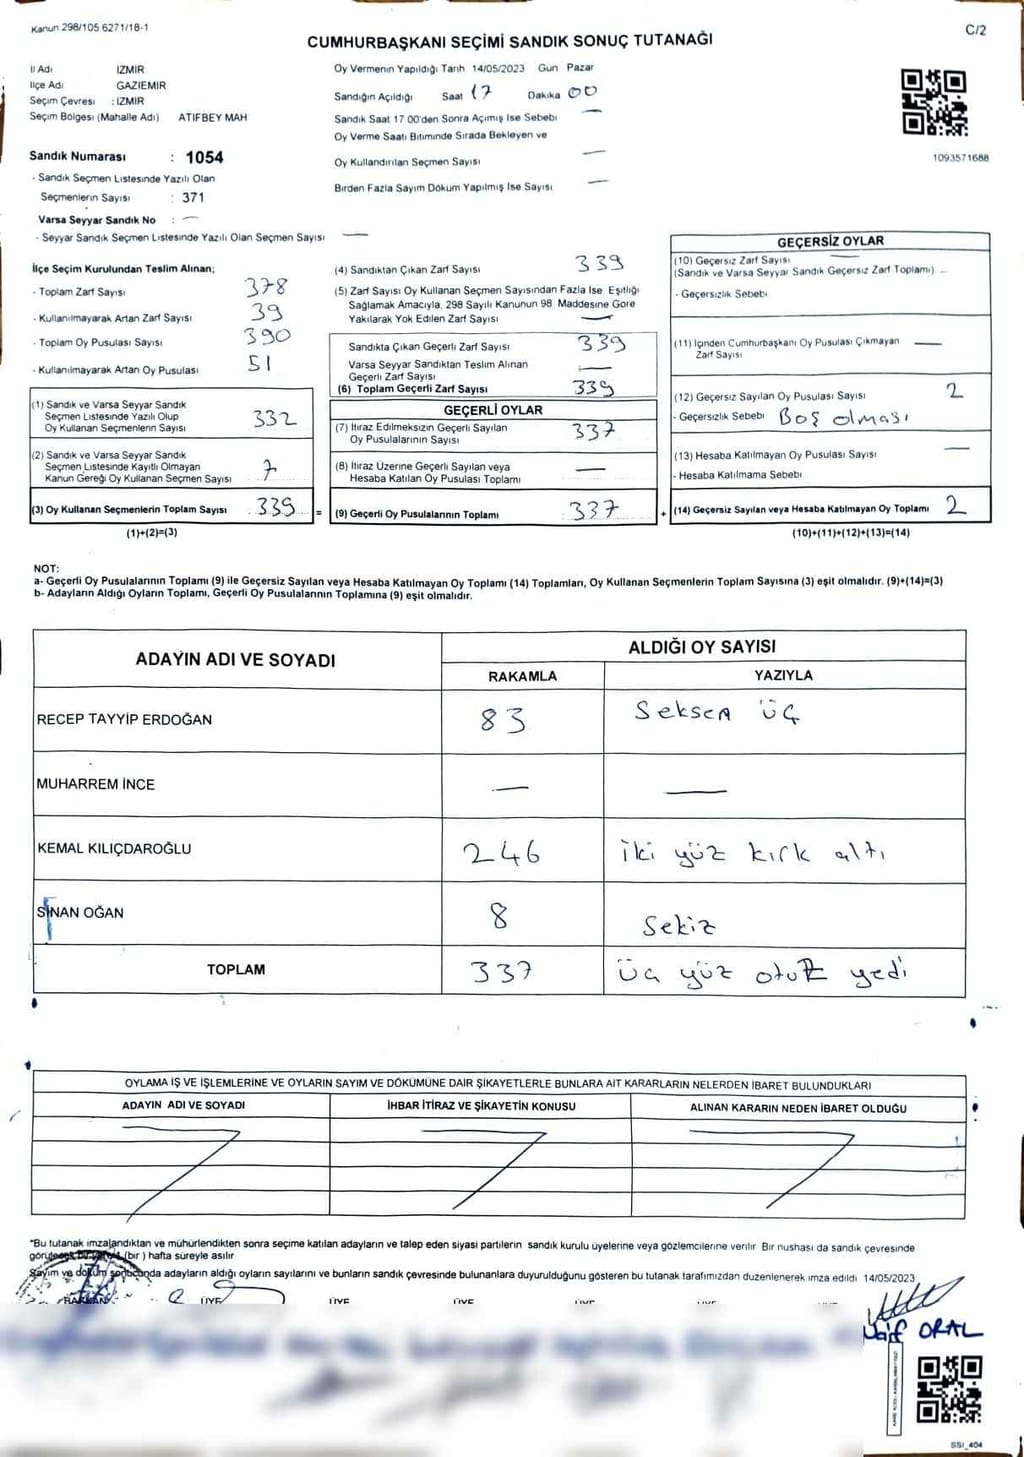 Kanun 298/105 6271/18-1
C/2
CUMHURBAŞKANI SEÇİMİ SANDIK SONUÇ TUTANAĞI
İl Adı İZMİR
İlçe Adı GAZİEMİR
Seçim Çevresi : İZMİR
Seçim Bölgesi (Mahalle Adı) ATIFBEY MAH
Sandık Numarası : 1054
- Sandık Seçmen Listesinde Yazılı Olan
Seçmenlerin Sayısı : 371
Varsa Seyyar Sandık No : —
- Seyyar Sandık Seçmen Listesinde Yazılı Olan Seçmen Sayısı —
Oy Vermenin Yapıldığı Tarih 14/05/2023 Gün Pazar
Sandığın Açıldığı Saat 17 Dakika 00
Sandık Saat 17 00'den Sonra Açımış İse Sebebi —
Oy Verme Saati Bitiminde Sırada Bekleyen ve
Oy Kullandırılan Seçmen Sayısı —
Birden Fazla Sayım Döküm Yapılmış İse Sayısı —
1093571688
İlçe Seçim Kurulundan Teslim Alınan;
- Toplam Zarf Sayısı 378
- Kullanılmayarak Artan Zarf Sayısı 39
- Toplam Oy Pusulası Sayısı 390
- Kullanılmayarak Artan Oy Pusulası 51
(1) Sandık ve Varsa Seyyar Sandık
Seçmen Listesinde Yazılı Olup
Oy Kullanan Seçmenlerin Sayısı 332
(2) Sandık ve Varsa Seyyar Sandık
Seçmen Listesinde Kayıtlı Olmayan
Kanun Gereği Oy Kullanan Seçmen Sayısı 7
(3) Oy Kullanan Seçmenlerin Toplam Sayısı 339 =
(1)+(2)=(3)
(4) Sandıktan Çıkan Zarf Sayısı 339
(5) Zarf Sayısı Oy Kullanan Seçmen Sayısından Fazla İse, Eşitliği
Sağlamak Amacıyla, 298 Sayılı Kanunun 98 Maddesine Göre
Yakılarak Yok Edilen Zarf Sayısı —
Sandıkta Çıkan Geçerli Zarf Sayısı 339
Varsa Seyyar Sandıktan Teslim Alınan
Geçerli Zarf Sayısı —
(6) Toplam Geçerli Zarf Sayısı 339
GEÇERLİ OYLAR
(7) İtiraz Edilmeksizin Geçerli Sayılan
Oy Pusulalarının Sayısı 337
(8) İtiraz Üzerine Geçerli Sayılan veya
Hesaba Katılan Oy Pusulası Toplamı —
(9) Geçerli Oy Pusulalarının Toplamı 337 +
GEÇERSİZ OYLAR
(10) Geçersiz Zarf Sayısı —
(Sandık ve Varsa Seyyar Sandık Geçersiz Zarf Toplamı) —
- Geçersizlik Sebebi
(11) İçinden Cumhurbaşkanı Oy Pusulası Çıkmayan —
Zarf Sayısı
(12) Geçersiz Sayılan Oy Pusulası Sayısı 2
- Geçersizlik Sebebi Boş olması
(13) Hesaba Katılmayan Oy Pusulası Sayısı —
- Hesaba Katılmama Sebebi
(14) Geçersiz Sayılan veya Hesaba Katılmayan Oy Toplamı 2
(10)+(11)+(12)+(13)=(14)
NOT:
a- Geçerli Oy Pusulalarının Toplamı (9) ile Geçersiz Sayılan veya Hesaba Katılmayan Oy Toplamı (14) Toplamları, Oy Kullanan Seçmenlerin Toplam Sayısına (3) eşit olmalıdır. (9)+(14)=(3)
b- Adayların Aldığı Oyların Toplamı, Geçerli Oy Pusulalarının Toplamına (9) eşit olmalıdır.
ADAYIN ADI VE SOYADI
ALDIĞI OY SAYISI
RAKAMLA YAZIYLA
RECEP TAYYİP ERDOĞAN 83 Seksen üç
MUHARREM İNCE — —
KEMAL KILIÇDAROĞLU 246 iki yüz kırk altı
SİNAN OĞAN 8 Sekiz
TOPLAM 337 üç yüz otuz yedi
OYLAMA İŞ VE İŞLEMLERİNE VE OYLARIN SAYIM VE DÖKÜMÜNE DAİR ŞİKAYETLERLE BUNLARA AİT KARARLARIN NELERDEN İBARET BULUNDUKLARI
ADAYIN ADI VE SOYADI İHBAR İTİRAZ VE ŞİKAYETİN KONUSU ALINAN KARARIN NEDEN İBARET OLDUĞU
"Bu tutanak imzalandıktan ve mühürlendikten sonra seçime katılan adayların ve talep eden siyasi partilerin sandık kurulu üyelerine veya gözlemcilerine verilir Bir nüshası da sandık çevresinde
(bir ) hafta süreyle asılır
Sayım ve döküm sonucunda adayların aldığı oyların sayılarını ve bunların sandık çevresinde bulunanlara duyurulduğunu gösteren bu tutanak tarafımızdan düzenlenerek imza edildi 14/05/2023
BAŞKAN ÜYE ÜYE ÜYE ÜYE ÜYE
ORAL
SSI_404